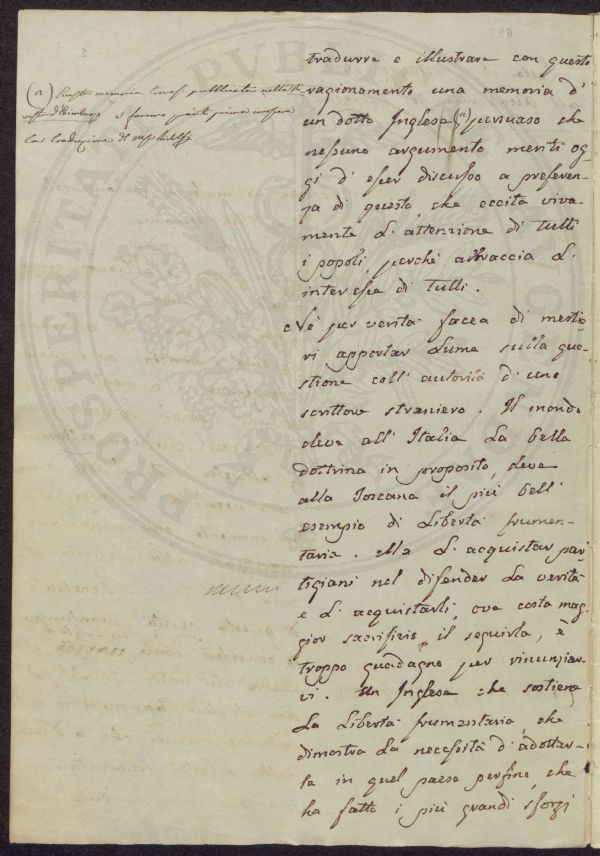 tradurre e illustrare con questo
ragionamento una memoria d'
un dotto Inglese (a) persuaso che
nessuno argumento meriti og-
gi d' esser discusso a preferen-
za di questo, che eccita viva-
mente l' attenzione di tutti
i popoli, perché abbraccia l'
interesse di tutti.
Né per verità facea di mestie-
ri apportar lume sulla que-
stione coll' autorità d' uno
scrittore straniero. Il mondo
deve all' Italia la bella
dottrina in proposito, deve
alla Toscana il più bell'
esempio di libertà frumen-
taria. Ma l' acquistar par-
tigiani nel difender la verità
e l' acquistarli, ove costa mag-
gior sacrifizio il seguirla, è
troppo guadagno per rinunziar-
vi. Un Inglese che sostiene
la libertà frumentaria, che
dimostra la necessità d' adottar-
la in quel paese perfino, che
ha fatti i più grandi sforzi
(a) Questa memoria pubblicata nella
d'Edimburgo
la traduzione del